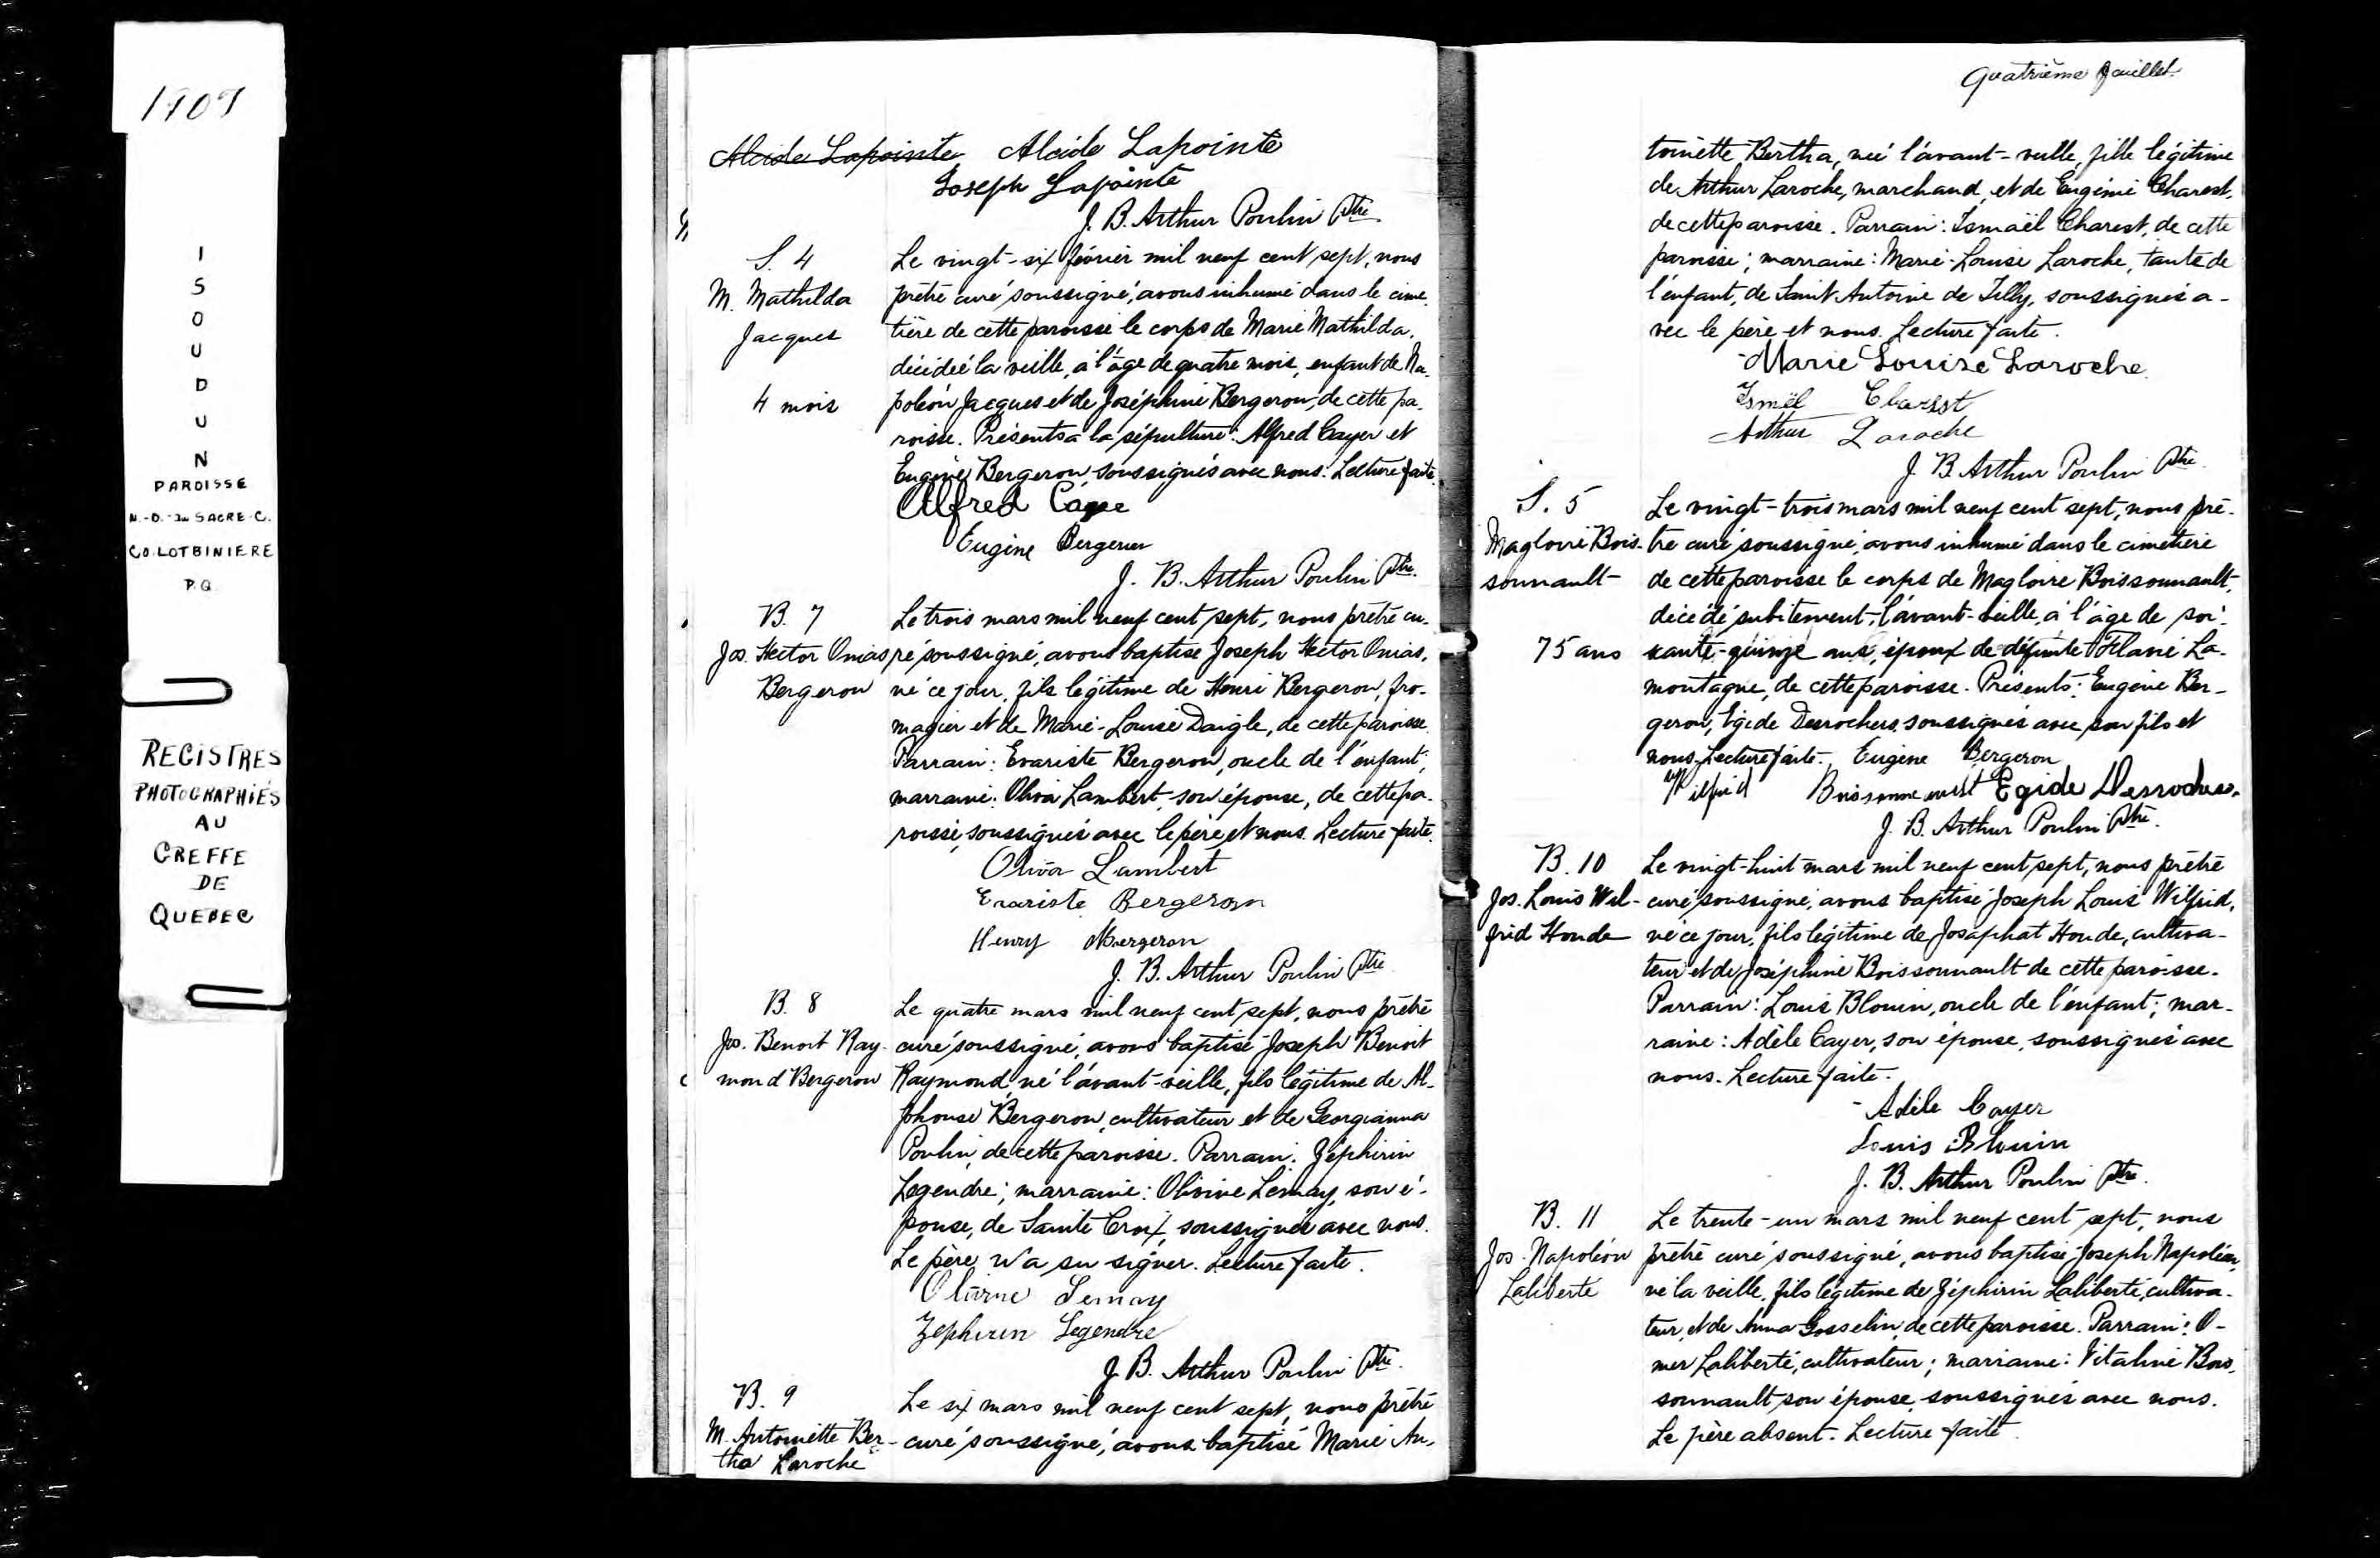 1907
I
S
O
U
D
U
N
PAROISSE
N.-D.-du SACRE-C.
CO. LOTBINIERE
P.Q.
REGISTRES
PHOTOGRAPHIÉS
AU
GREFFE
DE
QUEBEC
Alcide Lapointe, Alcide Lapointe
Joseph Lapointe
J. B. Arthur Poulin Ptre
S. 4
M. Mathilda
Jacques
4 mois
Le vingt-six février mil neuf cent sept, nous
prêtre curé soussigné, avons inhumé dans le cime-
tière de cette paroisse le corps de Marie Mathilda,
décédée la veille, à l'âge de quatre mois, enfant de Na-
poléon Jacques et de Joséphine Bergeron, de cette pa-
roisse. Présents à la sépulture: Alfred Cayer et
Eugène Bergeron, soussignés avec nous. Lecture faite.
Alfred Caye
Eugène Bergeron
J. B. Arthur Poulin Ptre.
B. 7
Jos. Hector Onias
Bergeron
Le trois mars mil neuf cent sept, nous prêtre cu-
ré soussigné, avons baptisé Joseph Hector Onias,
né ce jour, fils légitime de Henri Bergeron, fro-
magier et de Marie-Louise Daigle, de cette paroisse.
Parrain: Evariste Bergeron, oncle de l'enfant;
marraine: Oliva Lambert, son épouse, de cette pa-
roisse, soussignés avec le père et nous. Lecture faite.
Oliva Lambert
Evariste Bergeron
Henry Bergeron
J. B. Arthur Poulin Ptre
B. 8
Jos. Benoit Ray-
mond Bergeron
Le quatre mars mil neuf cent sept, nous prêtre
curé soussigné, avons baptisé Joseph Benoit
Raymond, né l'avant-veille, fils légitime de Al-
phonse Bergeron, cultivateur et de Georgianna
Poulin, de cette paroisse. Parrain: Zéphirin
Legendre; marraine: Olivine Lemay, son é-
pouse, de Sainte Croix, soussignés avec nous.
Le père n'a su signer. Lecture faite.
Olivine Lemay
Zephirin Legendre
J. B. Arthur Poulin Ptre.
B. 9
M. Antoinette Ber-
tha Laroche
Le six mars mil neuf cent sept, nous prêtre
curé soussigné, avons baptisé Marie An-
Quatrième feuillet.
toinette Bertha, née l'avant-veille, fille légitime
de Arthur Laroche, marchand, et de Eugénie Charest,
de cette paroisse. Parrain: Ismaël Charest, de cette
paroisse; marraine: Marie-Louise Laroche, tante de
l'enfant, de Saint Antoine de Tilly, soussignés a-
vec le père et nous. Lecture faite.
Marie Louise Laroche
Ismël Charest
Arthur Laroche
J. B. Arthur Poulin Ptre.
S. 5
Magloire Bois-
sonnault
75 ans
Le vingt-trois mars mil neuf cent sept, nous prê-
tre curé soussigné, avons inhumé dans le cimetière
de cette paroisse le corps de Magloire Boissonnault,
décédé subitement, l'avant-veille, à l'âge de soi-
xante-quinze ans, époux de défunte Flavie La-
montagne, de cette paroisse. Présents: Eugène Ber-
geron, Egide Desrochers, soussignés avec son fils et
nous. Lecture faite. Eugène Bergeron
Wilfrid Boissonneault Egide Desrochers.
J. B. Arthur Poulin Ptre.
B. 10
Jos. Louis Wil-
frid Houde
Le vingt-huit mars mil neuf cent sept, nous prêtre
curé soussigné, avons baptisé Joseph Louis Wilfrid,
né ce jour, fils légitime de Josaphat Houde, cultiva-
teur et de Joséphine Boissonnault de cette paroisse.
Parrain: Louis Blouin, oncle de l'enfant; mar-
raine: Adèle Cayer, son épouse, soussignés avec
nous. Lecture faite.
Adèle Cayer
Louis Blouin
J. B. Arthur Poulin Ptre.
B. 11
Jos. Napoléon
Laliberté
Le trente-un mars mil neuf cent sept, nous
prêtre curé soussigné, avons baptisé Joseph Napoléon,
né la veille, fils légitime de Zéphirin Laliberté, cultiva-
teur, et de Anna Gosselin, de cette paroisse. Parrain: O-
mer Laliberté, cultivateur; marraine: Vitaline Bois-
sonnault son épouse, soussignés avec nous.
Le père absent. Lecture faite.